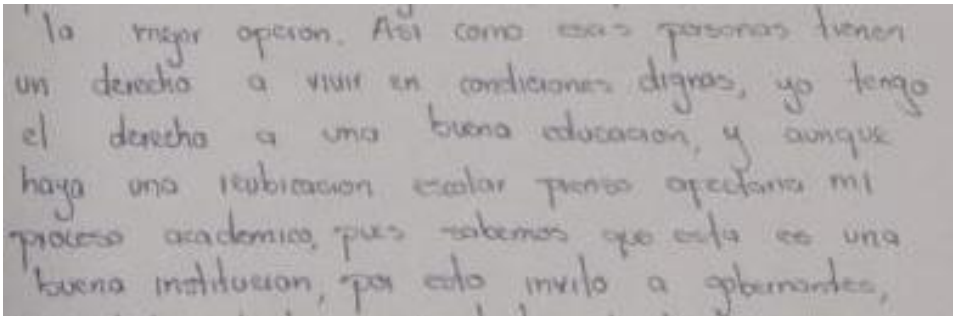 la mejor opcion. Asi como esas personas tienen
un derecho a vivir en condiciones dignas, yo tengo
el derecho a una buena educacion, y aunque
haya una reubicacion escolar pienso afectaria mi
proceso academico, pues sabemos que esta es una
buena institucion, por esto invito a gobernantes,